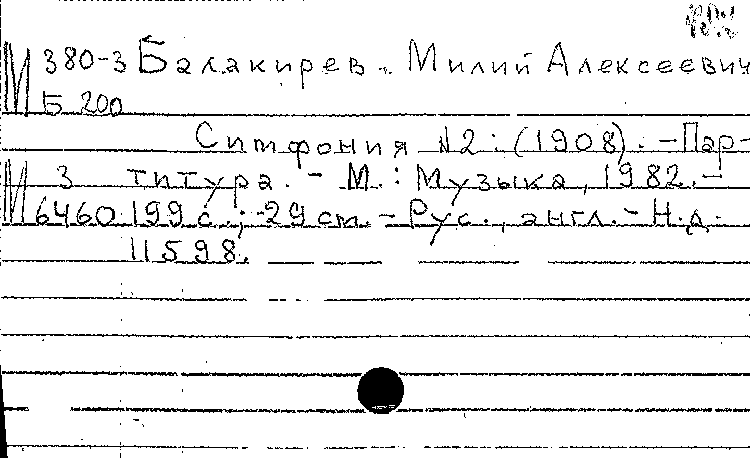 М 380-3 Балакирев, Милий Алексеевич
Б 200
Симфония №2: (1908). - Пар-
М 3 титура. - М.: Музыка, 1982. -
6460 199 с.; 29 см. - Рус., англ. - Н.д.
11598.